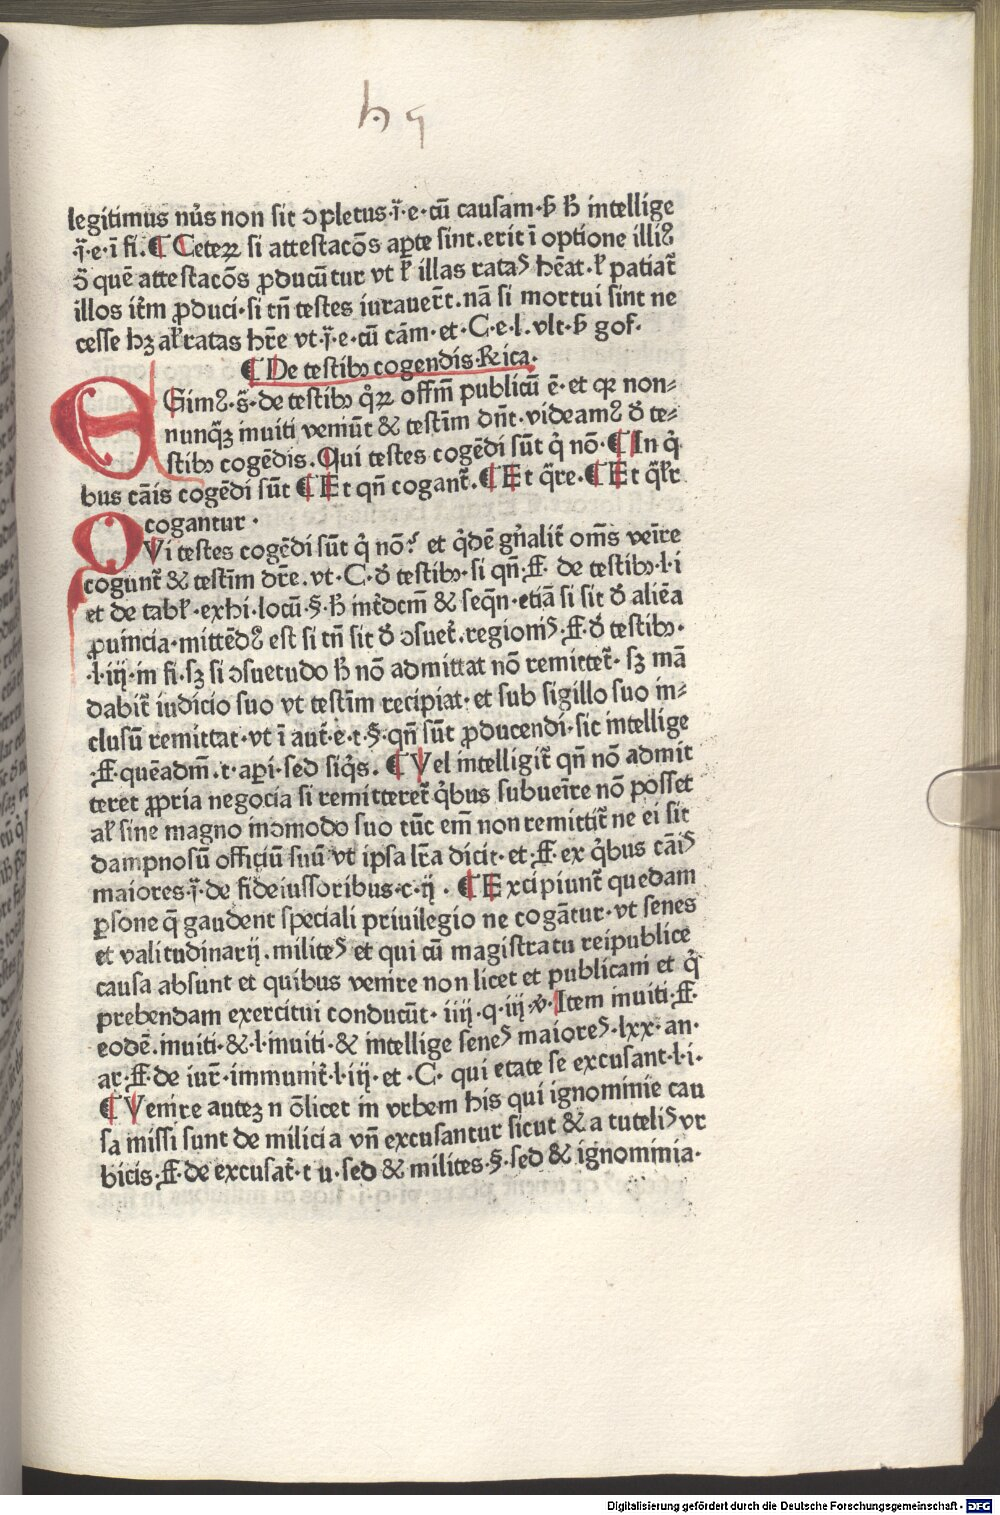 h 9
legitimus nu᷒s non sit ↄpletus·i̅·e·cu̅ causam·ꝧ ꝧ intellige
·i̅·e·i̅ fi.¶ Ceteꝝ si attestaco̅s aꝑte sint.erit i̅ optione illiꝰ
ↄ̅ que̅ attestaco̅s ꝓducu̅tur vt ꝉ illas ratas he̅at·ꝉ patiat᷑
illos ite̅ ꝓduci·si tn̅ testes iurauer̅t.na̅ si mortui sint ne
cesse hꝫ aꝉ ratas hr̅e vt·i̅·e·cu̅ ca̅m·et·C·e·l·vlt·ꝧ gof·
¶ De testibꝫ cogendis·Rica·
ESimꝰ·s̅·de testibꝫ q̅ꝝ offm̅ publicu̅ e̅·et qꝛ non⸗
nunq̅ꝫ inuiti veniu̅t & testim̅ dn̅t·videamꝰ ð te⸗
stibꝫ coge̅dis.Qui testes coge̅di su̅t q̇ no̅·¶ In q̇
bus ca̅is coge̅di su̅t ¶ Et qn̅ cogant᷑.¶ Et q̅re·¶ Et q̅lr̅
cogantur·
QVi testes coge̅di su̅t q̇ no̅? et q̇de̅ gn̅alit᷑ om̅s veir̅e
cogunt᷑ & testim̅ dr̅e.vt·C·ð testibꝫ·si qn̅·ff· de testibꝫ·l·i
et de tabꝉ·exhi·locu̅·§·ꝧ int̅dcm̅ & seqn̅·etia̅ si sit ð alie̅a
ꝓuincia·mitte̅dꝰ est si tn̅ sit ð ↄsuet᷑.regionis·ff·ð testibꝫ·
·l·iij·in fi·sꝫ si ↄsuetudo ꝧ no̅ admittat no̅ remittet᷑· sꝫ ma̅
dabit᷑ iudicio suo vt testim̅ recipiat·et sub sigillo suo in⸗
clusu̅ remittat·vt i̅ aut᷑·e·t·§·qn̅ su̅t ꝓducendi·sic intellige
·ff·que̅adm̅·t·aꝑi·sed siq̇s. ¶ Vel intelligit᷑ qn̅ no̅ admit
teret ꝓpria negocia si remitteret᷑ q̇bus subueir̅e no̅ posset
aꝉ sine magno inↄmodo suo tu̅c em̅ non remittit᷑ ne ei sit
dampnosu̅ officiu̅ suu̅ vt ipsa lr̅a dicit·et·ff·ex q̇bus ca̅is
maiores·i̅·de fideiussoribus·c·ij · ¶ Excipiunt᷑ quedam
ꝑsone q̅ gaudent speciali priuilegio ne coga̅tur·vt senes
et valitudinarij.milites et qui cu̅ magistratu reipublice
causa absunt et quibus venire non licet et publicani et q̇
prebendam exercitui conducu̅t· iiij·q·iij·ꝟ·Item inuiti·ff·
eode̅.inuiti·&·l·inuiti·& intellige senes maiores·lxx·an·
ar·ff·de iur̅·immunit᷑·l·iij·et ·C· qui etate se excusant·l·i·
¶ Venire auteꝫ n o̅licet in vrbem his qui ignominie cau
sa missi sunt de milici a vn̅ excusantur sicut & a tutelis vr
bicis·ff·de excusat᷑·t u·sed & milites·§·sed & ignominia·
Digitalisierung gefördert durch die Deutsche Forschungsgemeinschaft · DFG